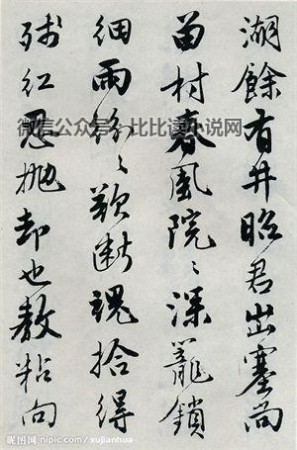 湖餘有井昭君出塞尚
留村春風院〻深籠鎖
細雨紛〻欲斷魂拾得
殘紅忍抛却也教粘向
微信公众号：比比读小说网
昵图网 nipic.com/xujianhua